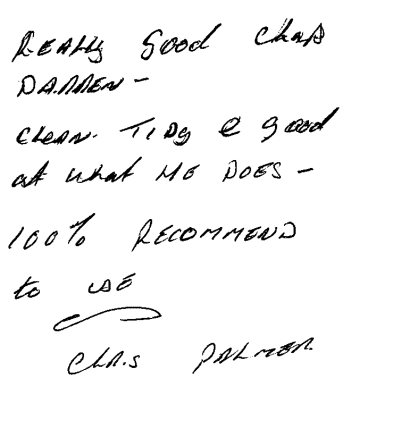 REALLY Good Chap
DARREN -
CLEAN. TIDy & good
at what HE DOES -
100% RECOMMEND
to USE
Chris PALMER